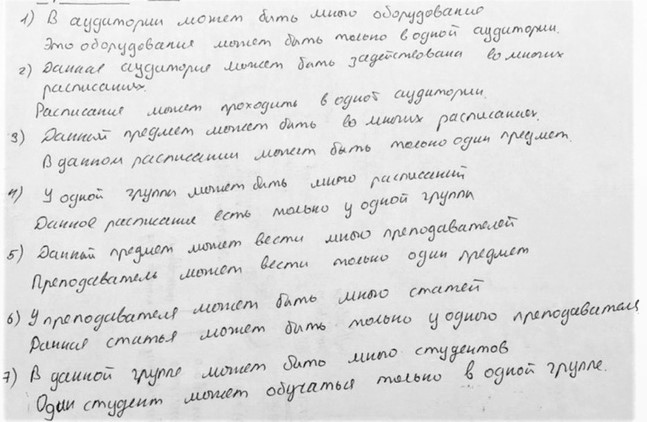 1) В аудитории может быть много оборудование
Это оборудование может быть только в одной аудитории.
2) Данная аудитория может быть задействована во многих
расписаниях.
Расписание может проходить в одной аудитории.
3) Данный предмет может быть во многих расписаниях.
В данном расписании может быть только один предмет.
4) У одной группы может быть много расписаний
Данное расписание есть только у одной группы
5) Данный предмет может вести много преподавателей
Преподаватель может вести только один предмет
6) У преподавателя может быть много статей
Данная статья может быть только у одного преподавателя
7) В данной группе может быть много студентов
Один студент может обучаться только в одной группе.